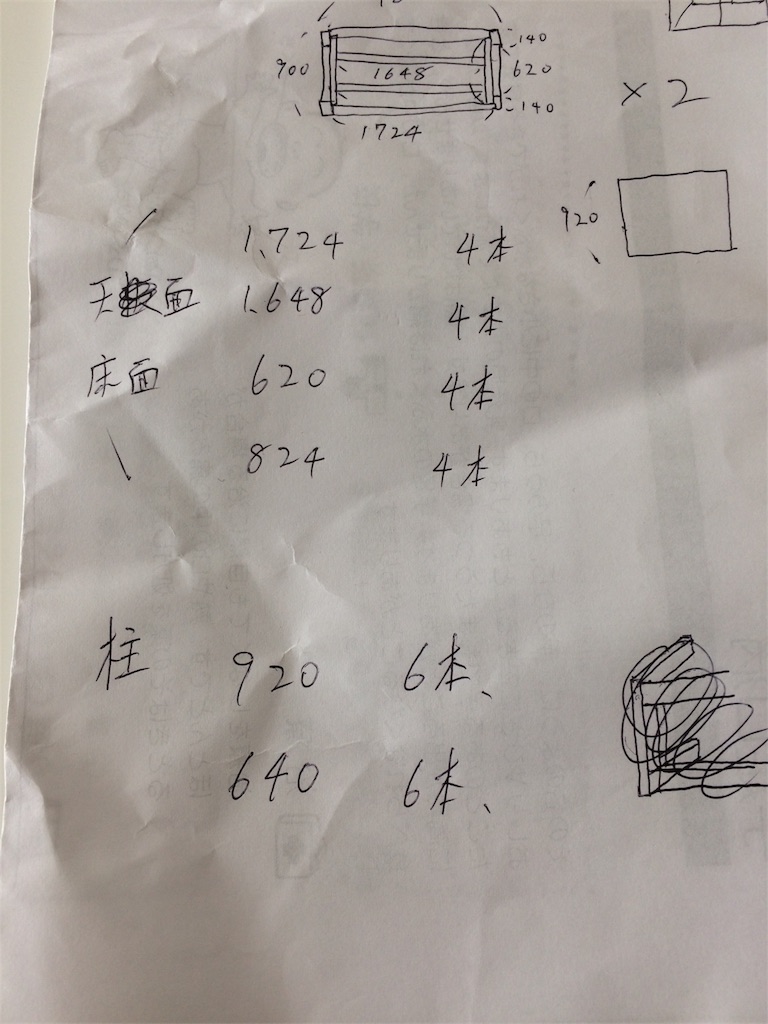 140
900 1648 620
× 2
140
1724
920
1,724 4本
天面 1,648 4本
床面 620 4本
824 4本
柱 920 6本、
640 6本、